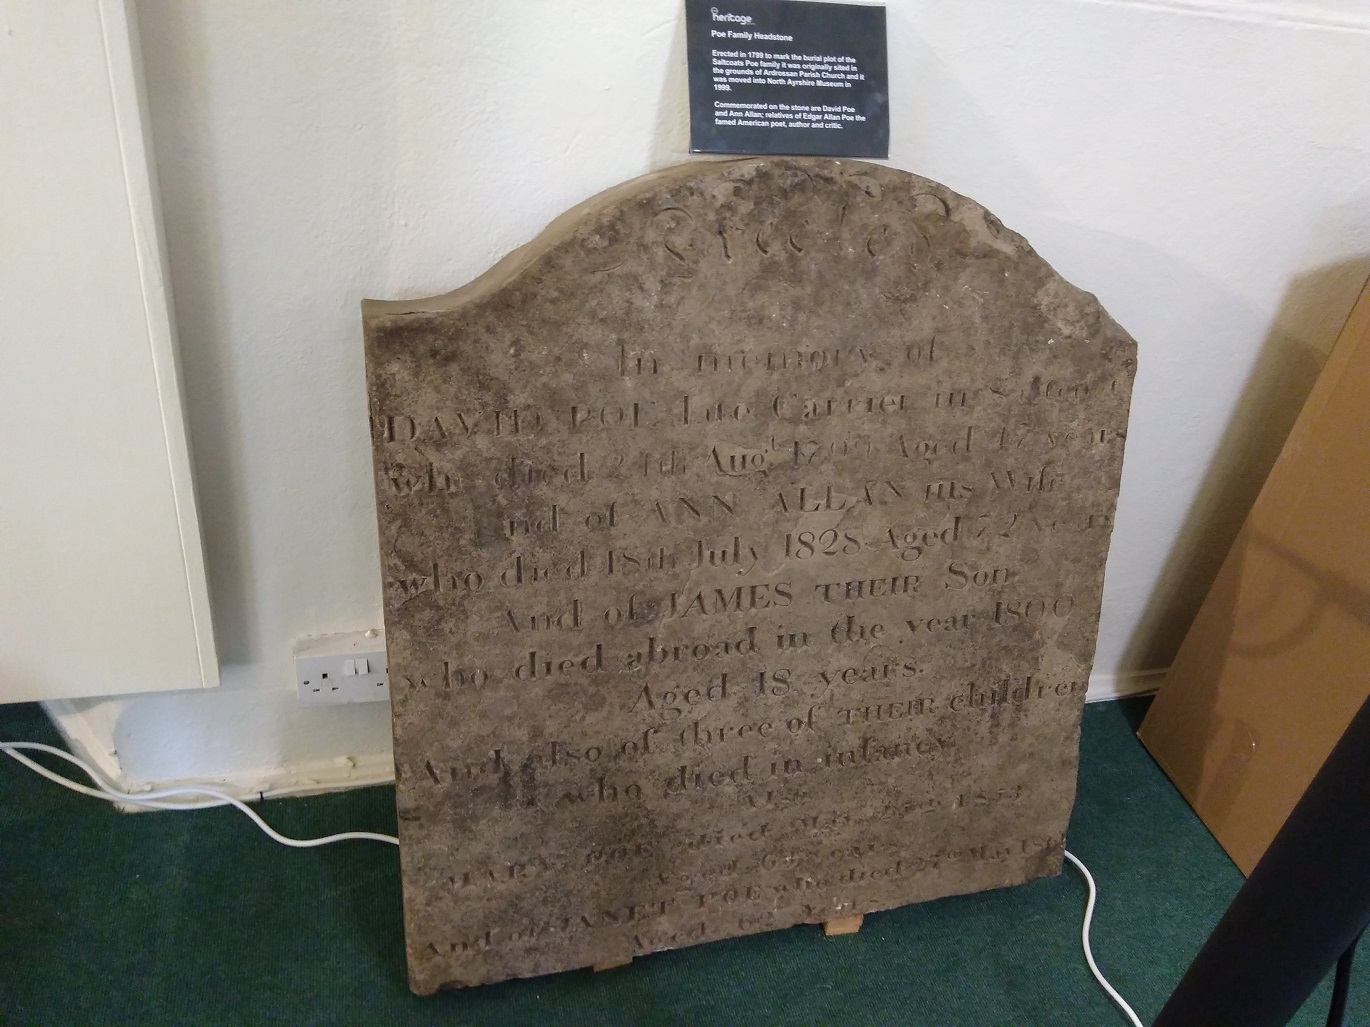 heritage
Poe Family Headstone
Erected in 1799 to mark the burial plot of the
Saltcoats Poe family it was originally sited in
the grounds of Ardrossan Parish Church and it
was moved into North Ayrshire Museum in
1999.
Commemorated on the stone are David Poe
and Ann Allan; relatives of Edgar Allan Poe the
famed American poet, author and critic.
Erected
In memory of
DAVID POE late Carrier in
who died 24th Augt Aged 47 year
nd of ANN ALLAN his Wife
who died 18th July 1828 Aged 72 year
And of JAMES THEIR Son
who died abroad in the year 1800
Aged 18 years.
And also of three of THEIR children
who died in infancy
Also
MARY POE died May 1853
Aged years
And of JANET POE who died 27th May
Aged Years